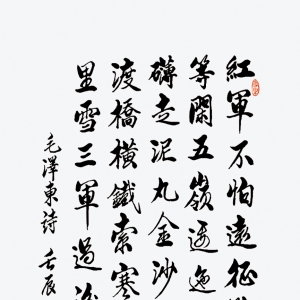 紅軍不怕遠征
等閑五嶺逶迤
礴走泥丸金沙
渡橋橫鐵索寒
里雪三軍過
毛澤東詩 壬辰